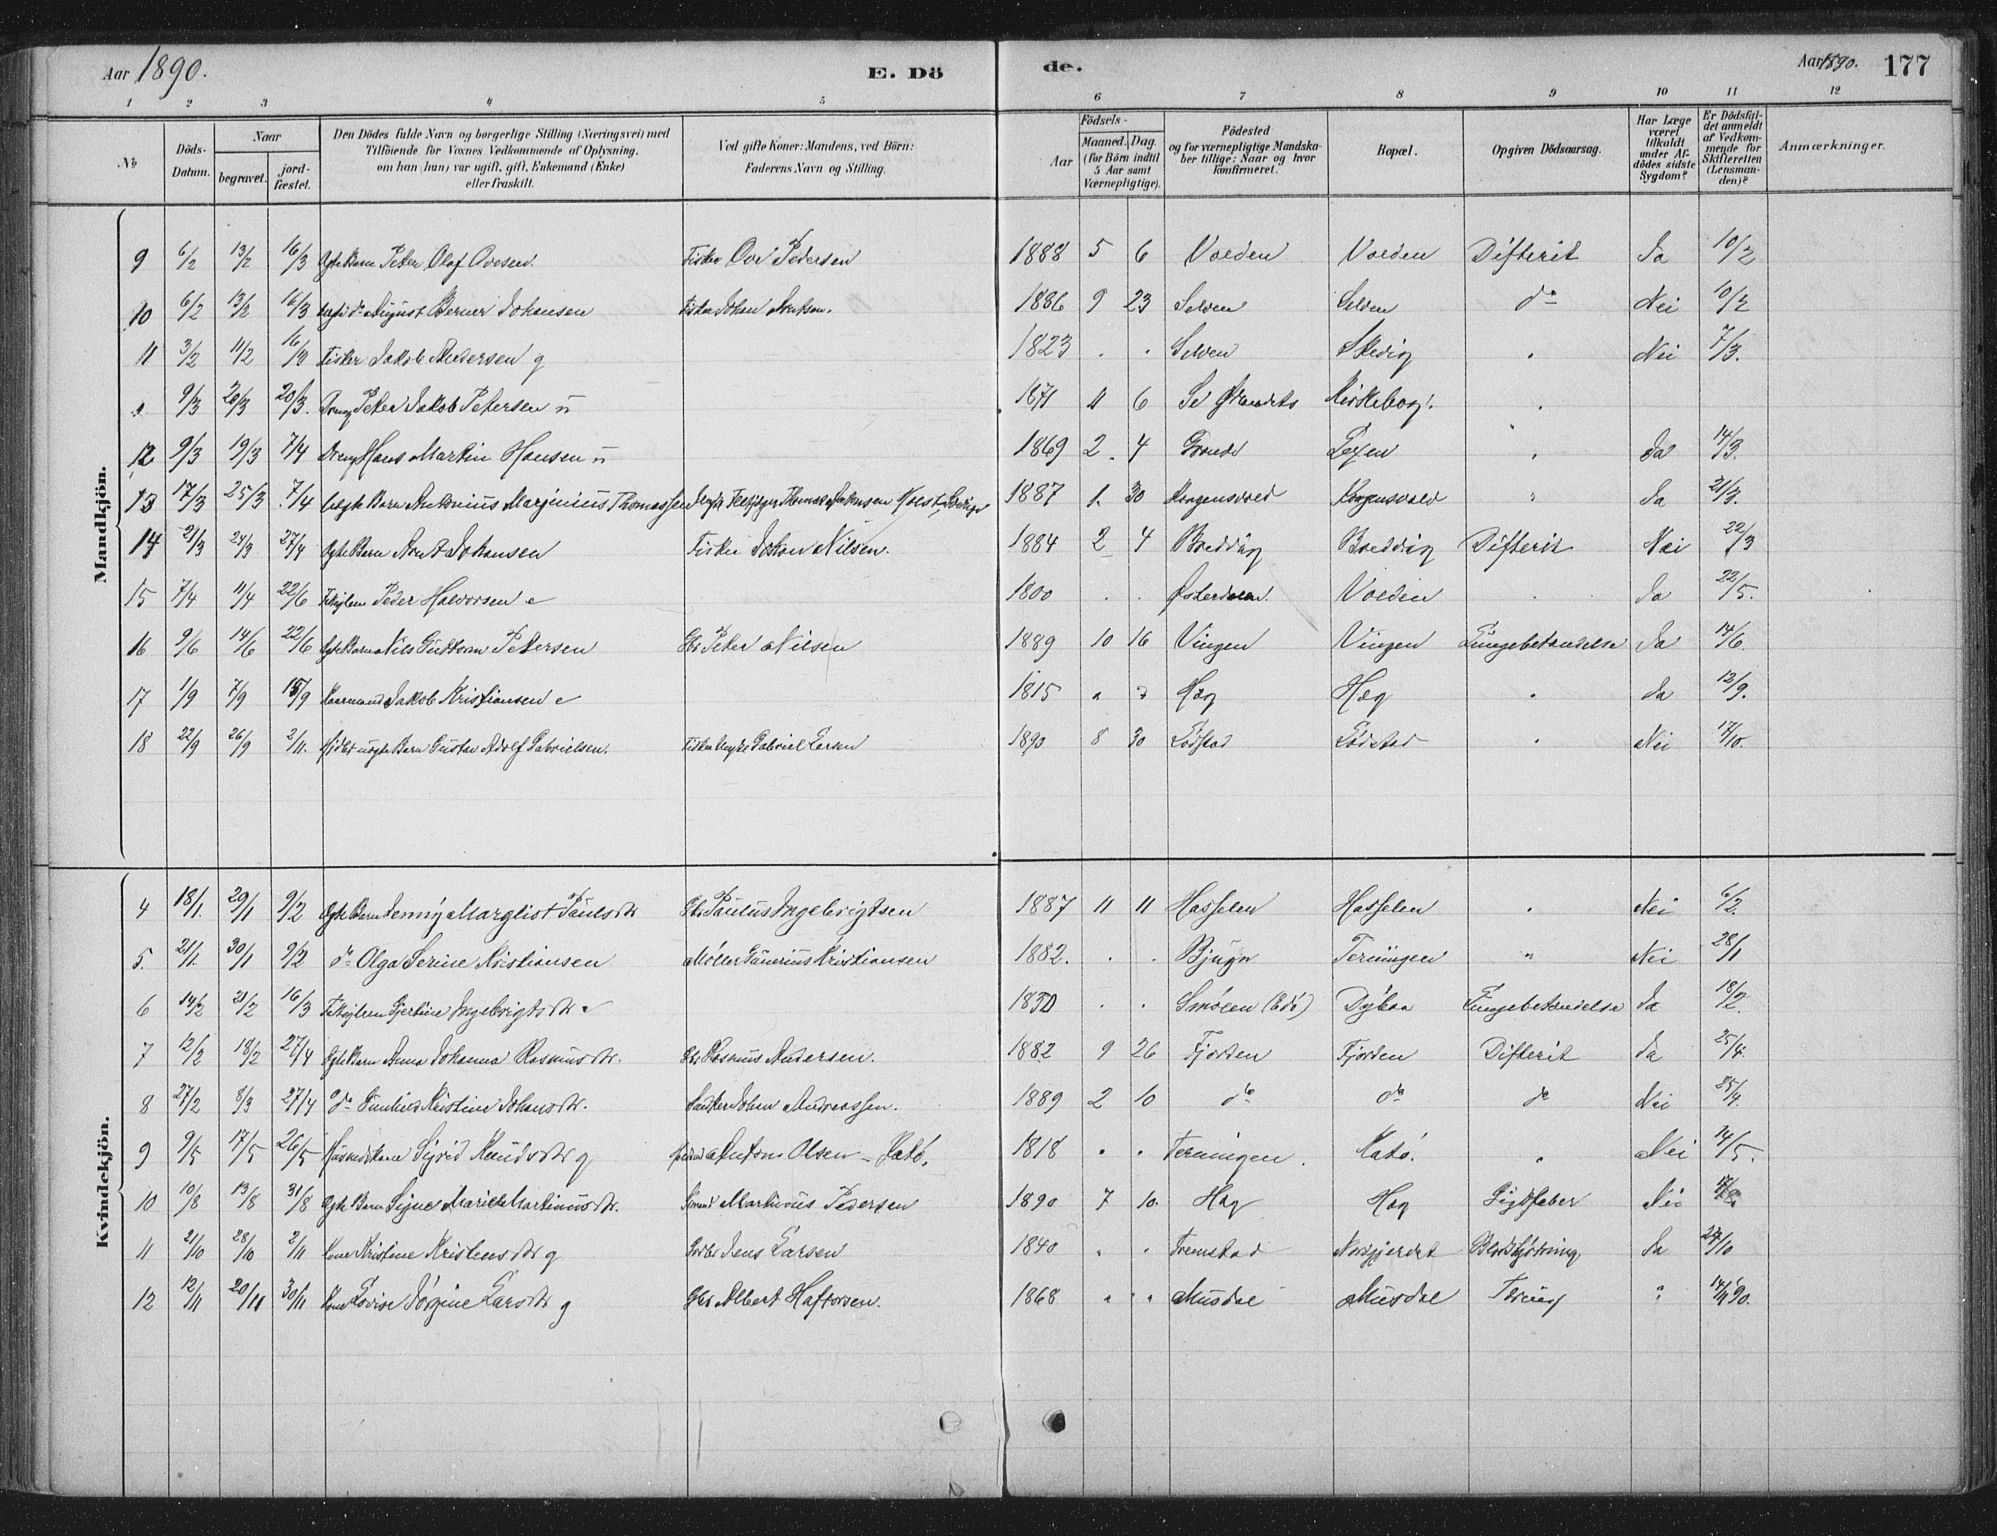 Aar 1890. E. Dö de. Aar 1890. 177
1 2 3 4 5 6 7 8 9 10 11 12
No
Döds-Datum.
Naar
begravet.
jord-fæstet.
Den Dödes fulde Navn og borgerlige Stilling (Næringsvei) med
Tilföiende for Voxnes Vedkommende af Oplysning,
om han (hun) var ugift, gift, Enkemand (Enke)
eller fraskilt.
Ved gifte Koner: Mandens, ved Börn:
Faderens Navn og Stilling.
Födsels-
Aar
Maaned. Dag.
(for Börn indtil
5 Aar samt
Værnepligtige).
Födested
og for værnepligtige Mandska-
ber tillige: Naar og hvor
konfirmeret.
Bopæl.
Opgiven Dödsaarsag.
Har Læge
været
tilkaldt
under Af-
dödes sidste
Sygdom?
Er Dödsfal-
det anmeldt
af Vedkom-
mende for
Skifteretten
(Lensman-
den)?
Anmærkninger.
Mandkjön.
9 6/2 13/2 16/3 Ægte Barn Peter Olaf Ovesen. Fisker Ove Pedersen 1888 5 6 Volden Volden Difterit Ja 10/2
10 6/2 13/2 16/3 August Berner Johansen Fisker Johan Arntsen. 1886 9 23 Selven Selven do Nei 10/2
11 3/2 11/2 Fisker Jakob Pedersen g 1823 " " Selven " Nei 7/3.
9/3 20/3 20/3. Dreng Peter Jakob Petersen u 1871 6 "
12 9/3 19/3 7/4 Dreng Hans Martin Hansen u 1869 2 4 " Ja 14/3.
13 17/3 25/3 7/4 uægte Barn Antonius Marginius Thomassen 1887 1 30 Krogensvold Krogensvold " Ja 21/3.
14 21/3 24/3 27/4 Ægte Barn Arnt Johansen Fisker Johan Nilsen. 1884 2 4 Bredvig Bredvig Difterit Nei 22/3
15 7/4 11/4 22/6 Peder Halvorsen e 1800 " " Østerdalen. Volden " Ja 22/5.
16 9/6 14/6 22/6 Ægte Barn Nils Guttorm Petersen Gbr Peter Nilsen 1889 10 16 Vingen Vingen Lungebetændelse Ja 14/6.
17 1/9 7/9 15/9 Kaarmand Jakob Kristiansen e 1815 " " Hæg Hæg " Ja 12/9.
18 22/9 26/9 2/11. uægte Barn Gustav Adolf Gabrielsen. Fisker Gabriel Larsen 1890 8 30 Lödstad Lödstad " Nei 17/10.
Kvindekjön.
4 18/1. 29/1 9/2 Ægte Barn Jenny Marglist Paulsdtr Gbr Paulus Ingebrigtsen 1887 11 11 Hasselen Hasselen " Nei 6/2.
5. 21/1. 30/1 9/2 do Olga Serine Kristiansen Møller Gunerius Kristiansen 1882. " " Bjugn Terningen " Nei 28/1
6 14/2 21/2 16/3 Gjertine Ingebrigtsdtr e 1830 " " Smølen (Edö) Dybaa Lungebetændelse Ja 18/2.
7 12/2 18/2 27/4 Ægte Barn Anna Johanna Rasmusdtr. Gbr Rasmus Andersen. 1882 9 26 Fjorden Fjorden Difterit Ja 25/4.
8 27/2 8/3 27/4 do Kristine Johansdtr. Johan Andreassen. 1889 2 10 do do do Nei 25/4.
9 9/5 17/5 26/5 Husmdskone Sigrid Knudsdtr g Anton Olsen – Hatö. 1818 " " Terningen. Hatö. " Nei 14/5.
10 10/8 13/8 31/8 Ægte Barn Signe Marie Martinusdtr. Martinus Pedersen 1890 7 10. Hæg Hæg Nei
11 21/10 28/10 2/11 Kone Kristine Kristensdtr g Gbr Jens Larsen 1840 " " Fremstad Nordgjerdet Blodstyrtning Ja 27/10
12 12/11 20/11 30/11 Kone Lovise Jörgine Larsdtr g Gbr Albert Haftorsen. 1868 " " Musdal Musdal Tæring " 14/11 90.